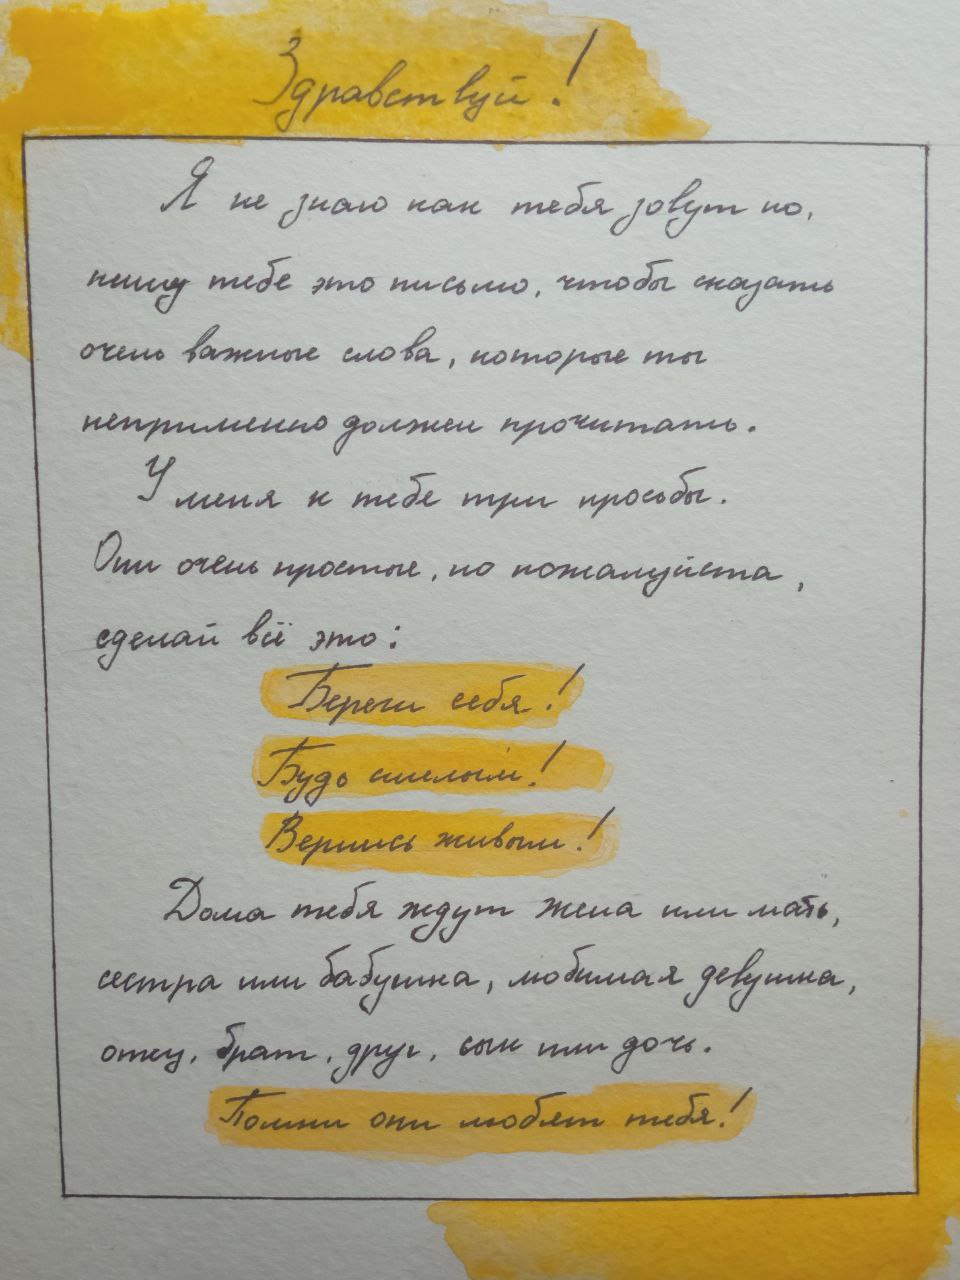 Здравствуй!
Я не знаю как тебя зовут но,
пишу тебе это письмо, чтобы сказать
очень важные слова, которые ты
неприменно должен прочитать.
У меня к тебе три просьбы.
Они очень простые, но пожалуйста,
сделай всё это:
Береги себя!
Будь смелым!
Вернись живым!
Дома тебя ждут жена или мать,
сестра или бабушка, любимая девушка,
отец, брат, друг, сын или дочь.
Помни они любят тебя!